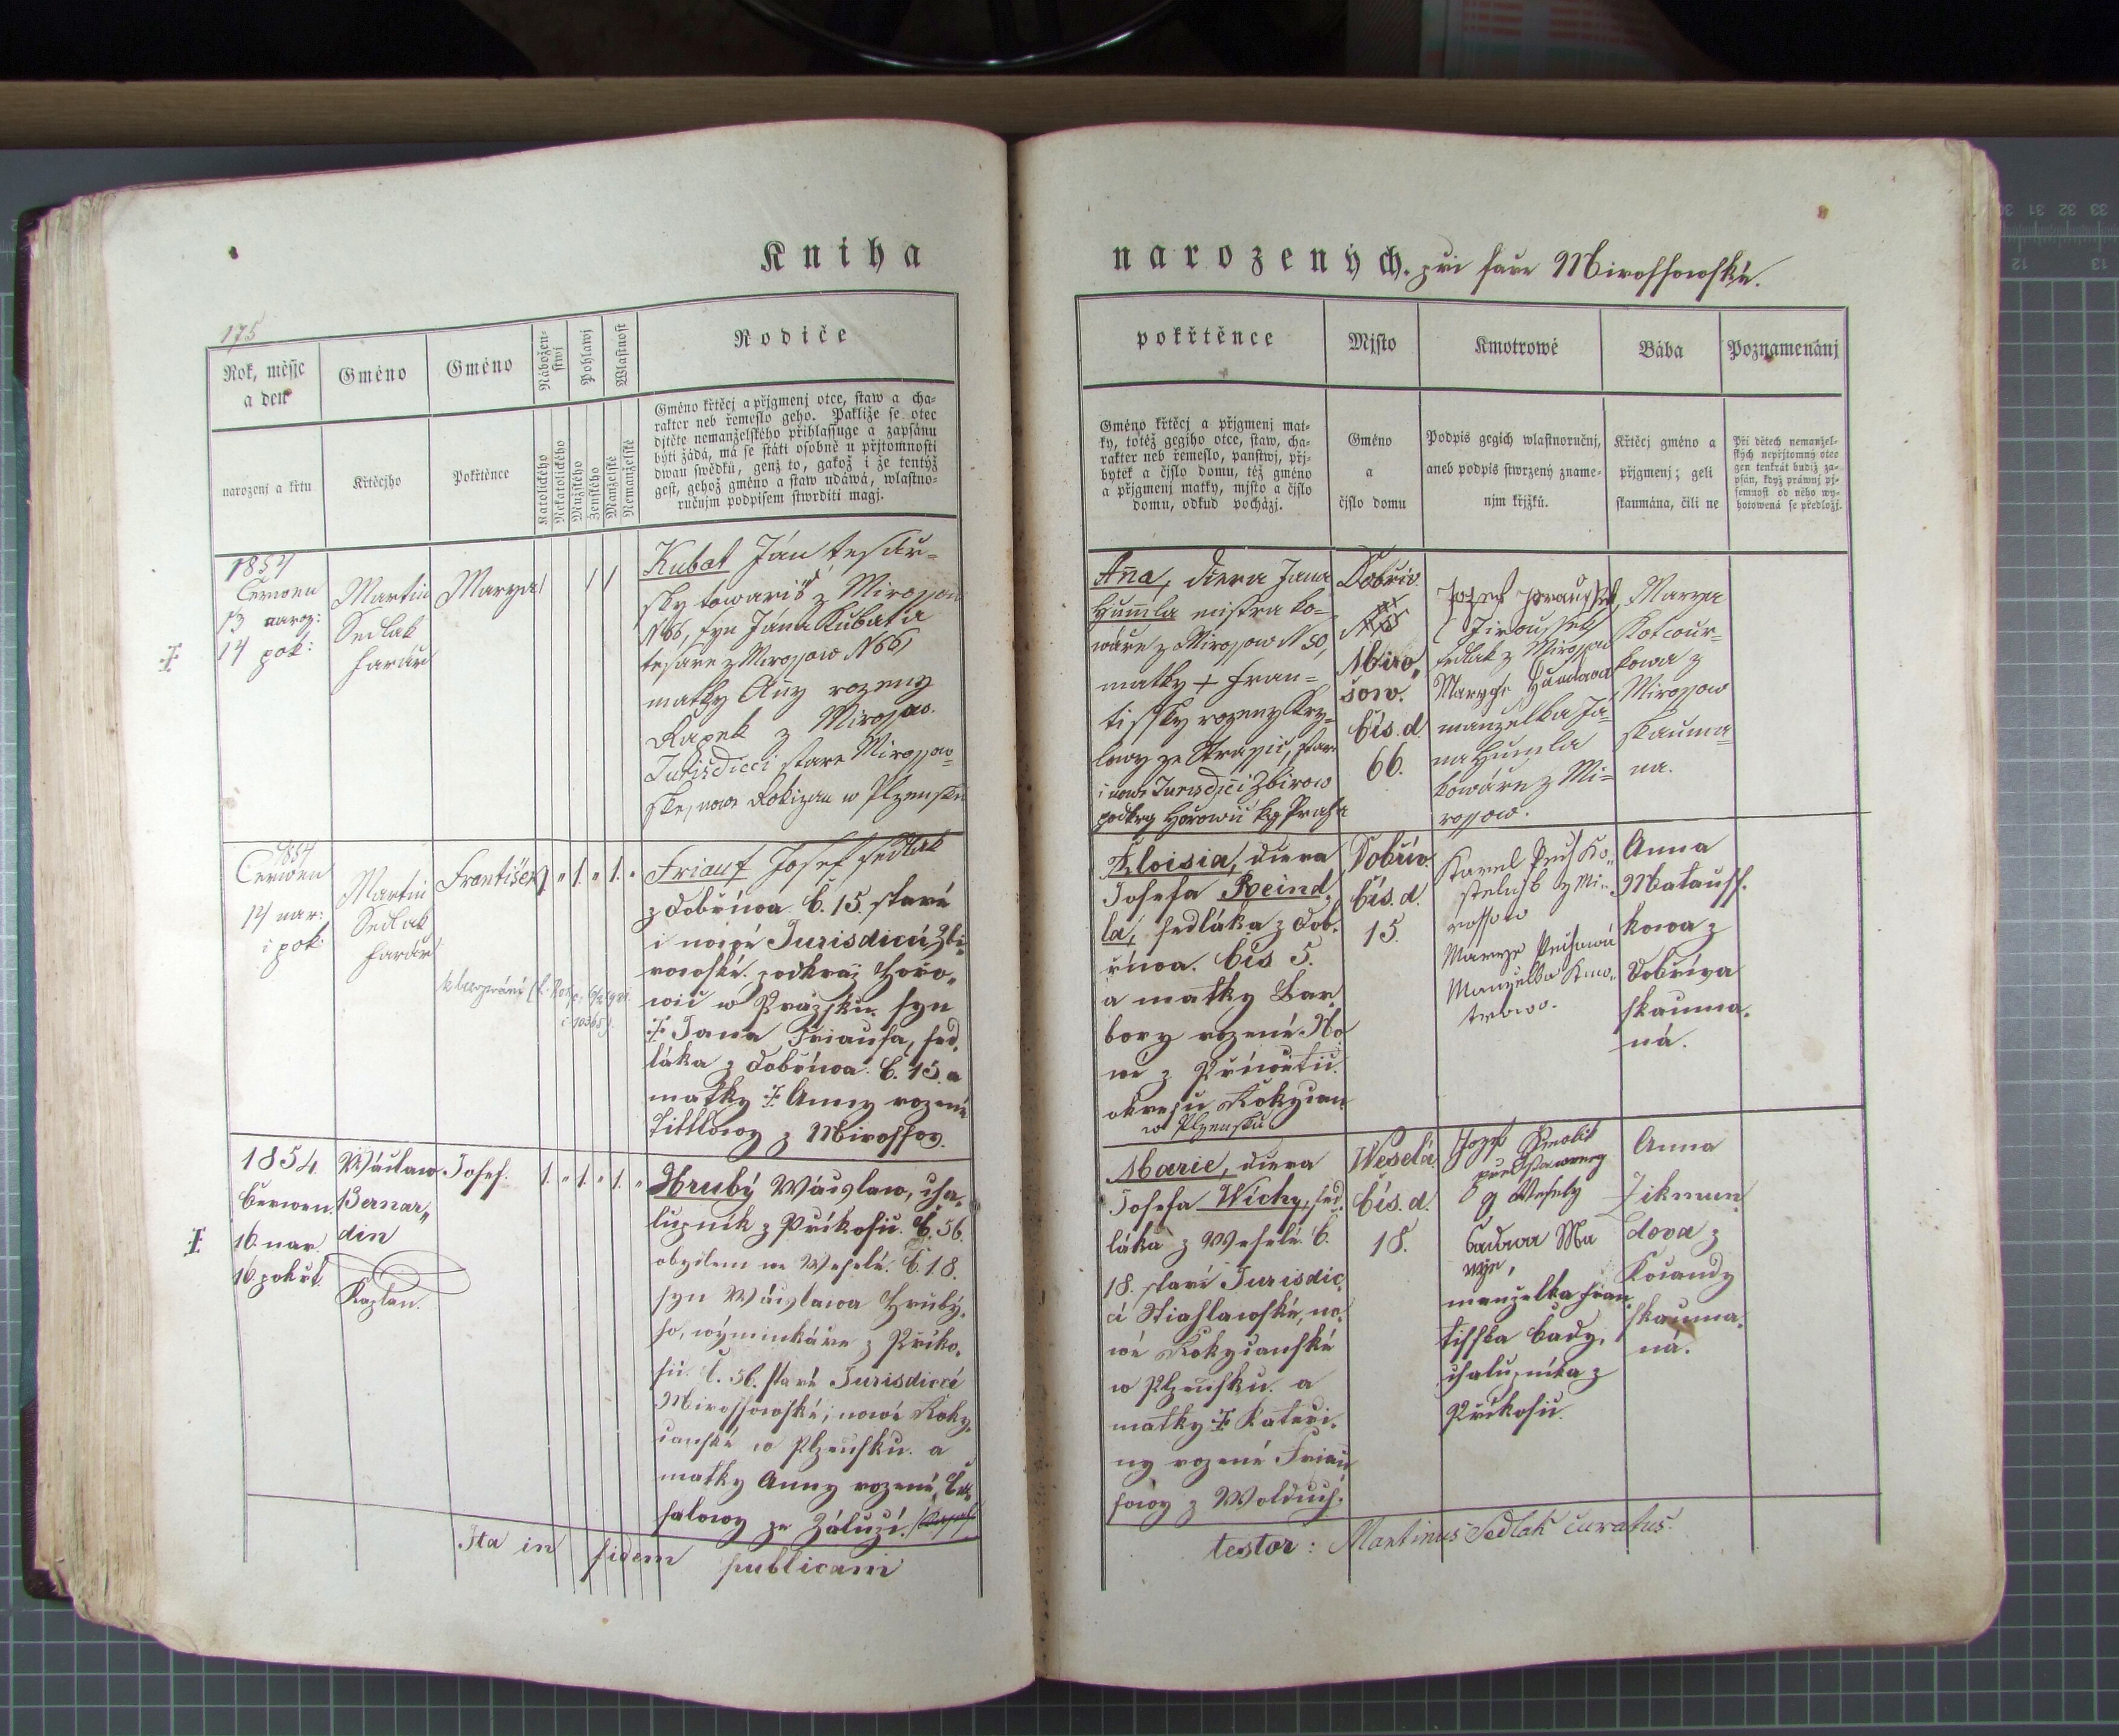 Kniha
narozených. při faře Mirossowské.
175
Rok, měsjc
a den
Gméno
Gméno
Nábožen-
stwj
Pohlawj
Wlastnost
Rodiče
narozenj a křtu
Křtěcjho
Pokřtěnce
Katolického
Nekatolického
Mužského
Ženského
Manželské
Nemanželské
Gméno křtěcj a přjgmenj otce, staw a cha-
rakter neb řemeslo geho. Pakliže se otec
djtěte nemanželského přihlassuge a zapsánu
býti žádá, má se státi osobně u přjtomnosti
dwau swědků, genž to, gakož i že tentýž
gest, gehož gméno a staw udáwá, wlastno-
ručnjm podpisem stwrditi magj.
pokřtěnce
Mjsto
Kmotrowé
Bába
Poznamenánj
Gméno křtěcj a přjgmenj mat-
ky, totéž gegjho otce, staw, cha-
rakter neb řemeslo, panstwj, přj-
bytek a čjslo domu, též gméno
a přjgmenj matky, mjsto a čjslo
domu, odkud pocházj.
Gméno
a
čjslo domu
Podpis gegich wlastnoručnj,
aneb podpis stwrzený zname-
njm křjžků.
Křtěcj gméno a
přjgmenj; geli
skaumána, čili ne
Při dětech nemanžel-
ských nepřjtomný otec
gen tenkrát budiž za-
psán, když práwnj pj-
semnost od něho wy-
hotowená se předložj.
1854
Červen
13 naroz:
14 pok:
Martin
Sedlak
farář
Marya
Kubat Ján tesař-
sky towariš z Mirossow
N 66, syn Jána Kubata
tesare z Mirossow N 66
matky Anny rozeny
Kapek z Mirossow.
Jurisdicci stare Mirossow-
ske, nove Rokizan w Plzensku
Anna, dcera Jana
Humla mistra ko-
wáre z Mirossow N 50,
matky + Fran-
tissky rozeny Kry-
lowy ze Strassic, stare
i nowe Jurisdicci Zbirow
podkrg Horowic kg Praha
Dobřiv.
Miro„
šow.
čís. d.
66.
Jozef Jiraussek
Jiroussek
sedlak z Mirossow
Marye Humlowa
manzelka Ja-
na Humla
kowáre z Mi-
rossow.
Marya
Kotcour-
kowa z
Mirossow
skauma-
na.
1854
Červen
14 nar:
i pok:
Martin
Sedlak
farář
František
1. „ 1. „ 1. „
Friauf Josef sedlák
z Dobříwa č. 15. staré
i nowé Jurisdicci Zbi-
rowské. podkraj Hořo-
wic w Pražsku. syn
‡ Jana Friaufa, sed-
láka z Dobříwa č. 15. a
matky ‡ Anny rozené
Tittlowy z Mirossow.
Aloisia, dcera
Josefa Reind-
la, sedláka z Dob-
říwa. čís 5.
a matky Bar-
bory rozené No-
wé z Příwětic.
okresu Rokycan
w Plzensku
Dobříw
čís. d.
15.
Karel Pech Ko-
stelník z Mi-
rossow
Marye Pechowá
Manzelka kmo-
trowo.
Anna
Matauss-
kowa z
Dobříwa
skauma-
ná.
1854
Červen.
16. nar.
16. pokřt.
Wáclaw
Bernar„
din
Kaplan.
Josef.
1. „ 1. „ 1. „
Hrubý Wáczlaw, cha-
lupník z Příkosic. č. 56.
obydlem we Weselé. č. 18.
syn Wáczlawa Hrubý-
ho, wýminkáře z Příko-
sic. č. 56. staré Jurisdiccí
Mirossowské; nowé Roky-
canské w Plzeňsku. a
matky Anny rozené
ze Záluží.
Marie, dcera
Josefa Wichy, sed-
láka z Weselé č.
18. staré Jurisdic-
cí Stiahlawské, no-
wé Rokycanské
w Plzeňsku. a
matky ‡ Kateři-
ny rozené Friau-
fowy z Wolduch.
Weselá
čís. d.
18.
Jozef Smolik
z Wesely
Čadowa Ma
rye,
manzelka Fran-
tisska Čady,
chalupníka z
Příkosic.
Anna
Zikmun-
dova z
Kocandy
skauma-
ná.
Ita in fidem publicam
testor: Martinus Sedlak curatus.